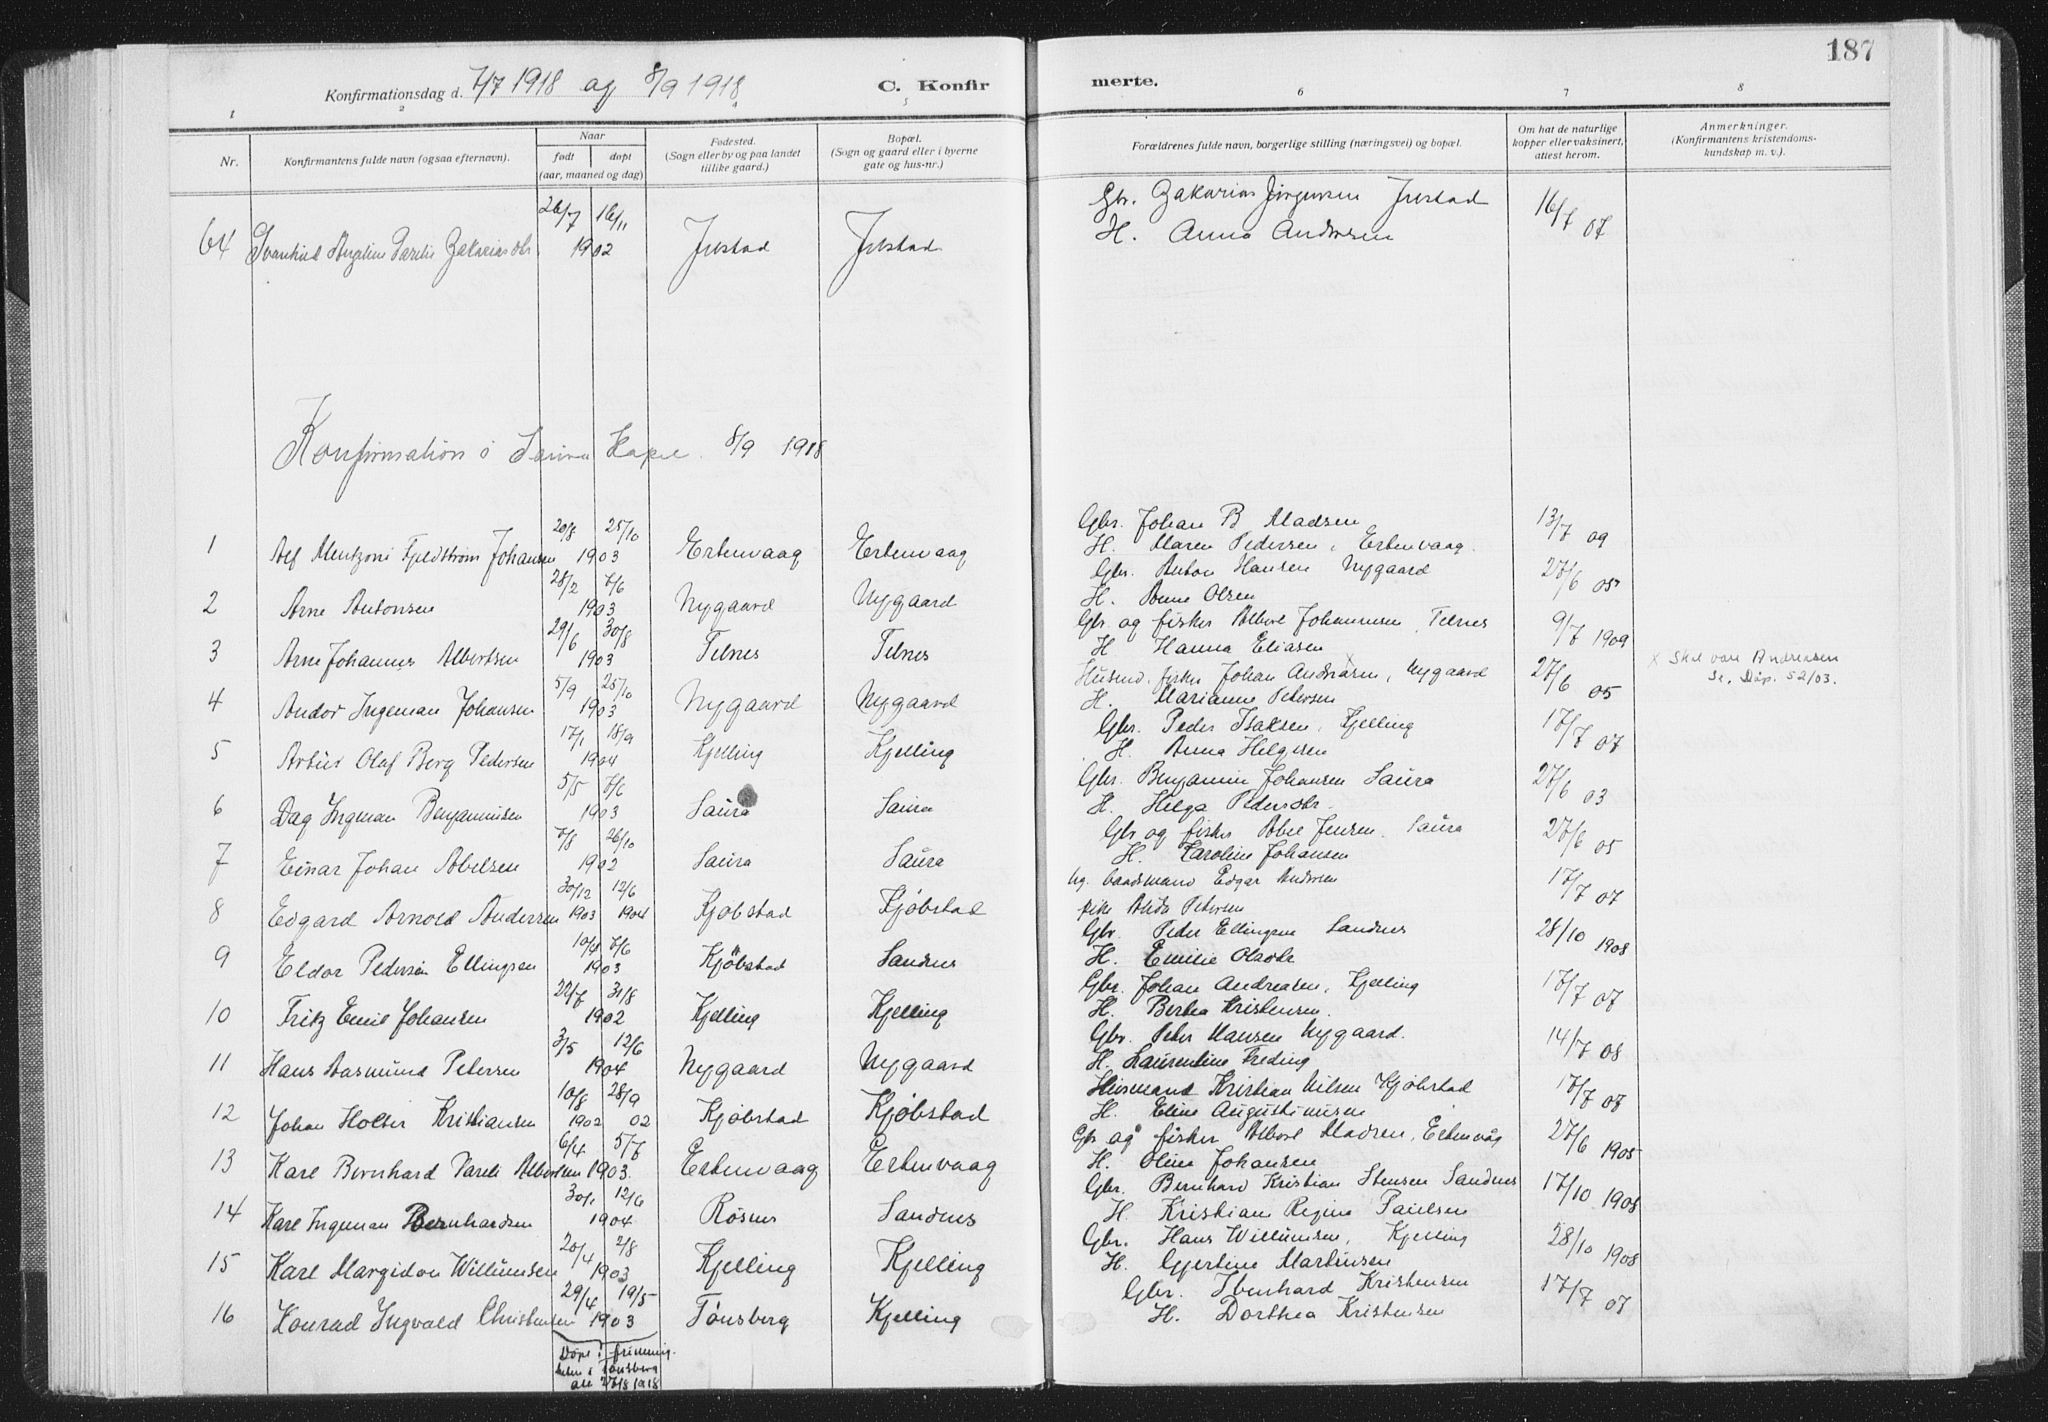 187
Konfirmationsdag d. 7/7 1918 og 8/9 1918 C. Konfirmerte.
1 2 5 6 7 8
Nr. Konfirmantens fulde navn (ogsaa efternavn). Naar født døpt (aar, maaned og dag) Fødested. (Sogn eller by og paa landet tillike gaard.) Bopæl. (Sogn og gaard eller i byerne gate og hus-nr.) Forældrenes fulde navn, borgerlige stilling (næringsvei) og bopæl. Om hat de naturlige kopper eller vaksinert, attest herom. Anmerkninger. (Konfirmantens kristendomskundskap m. v.).
26/7 16/11 Gbr. Zakarias Jörgensen Justad 16/7 07
64 Svanhild Angeline Parelie Zakariasdtr. 1902 Justad Justad H. Anna Andersen
Konfirmation i Saura Kapel. 8/9 1918
20/8 25/10 Gbr. Johan B Madsen 13/7 09
1 Alf Mentzoni Fjeldstrøm Johansen 1903 Ertenvaag Ertenvaag H. Maren Pedersen, Ertenvaag.
28/2 7/6 Gbr. Anton Hansen Nygaard 27/6 05
2 Arne Antonsen 1903 Nygaard Nygaard H. Anne Olsen
29/6 30/8 Gbr og fisker Albert Johannesen, Telnes 9/7 1909
3 Arne Johannes Albertsen 1903 Telnes Telnes H Hanna Eliasen
5/9 25/10 Husmd. fisker Johan Andersen x, Nygaard 27/6 05 x Skal være Andreasen
4 Andor Ingeman Johansen 1903 Nygaard Nygaard H. Marianne Petersen Se. Døp. 52/03.
17/1 18/9 Gbr. Peder Isaksen, Kjelling 17/7 07
5 Artur Olaf Berg Pedersen 1904 Kjelling Kjelling H. Anna Helgesen
5/5 7/6 Gbr. Benjamin Johansen Saura 27/6 03
6 Dag Ingman Benjaminsen 1903 Saura Saura H. Helga Pedersdtr.
7/8 26/10 Gbr og fisker Abel Jensen. Saura 27/6 05
7 Einar Johan Abelsen 1902 Saura Saura H. Karoline Johansen
30/12 12/6 Ug. baadsmand Edgar Andersen 17/7 07
8 Edgard Arnold Andersen 1903 1904 Kjøbstad Kjøbstad pike Anda Petersen
10/4 7/6 Gbr. Peder Ellingsen Sandnes 28/10 1908
9 Eldor Pedersen Ellingsen 1903 Kjöbstad Sandnes H. Emilie Olsdtr
22/7 31/8 Gbr. Johan Andreasen, Kjelling 17/7 07
10 Fritz Emil Johansen 1902 Kjelling Kjelling H. Bertea Kristensen.
3/5 12/6 Gbr. Peter Hansen Nygaard. 14/7 08
11 Hans Aasmund Petersen 1904 Nygaard Nygaard H. Laurentine Freding
10/8 28/9 Husmand Kristian Nilsen Kjøbstad 17/7 07
12 Johan Holter Kristiansen 1902 02 Kjøbstad Kjøbstad H. Eline Augustinusen
6/4 5/7 Gbr og fisker Albert Madsen, Ertenvåg 27/6 1905
13 Karl Bernhard Pareli Albertsen 1903. Ertenvaag Ertenvaag H. Oline Johansen
30/1 12/6 Gbr. Bernhard Kristian Stensen Sandnes 17/10 1908
14 Karl Ingeman Bernhardsen 1904 Røsnes Sandnes H. Kristiane Regine Paulsen
20/4 2/8 Gbr. Hans Willumsen, Kjelling 28/10 1908
15 Karl Margidon Willumsen 1903 Kjelling Kjelling H. Gjertine Martinsen
29/4 19/5 Gbr. Ibenhard Kristensen 17/7 07
16 Konrad Ingvald Christensen 1903 Tønsberg Kjelling H. Dorthea Kristensen
Døpt i frimenig-
heten i Tønsberg
att 27/8 1918